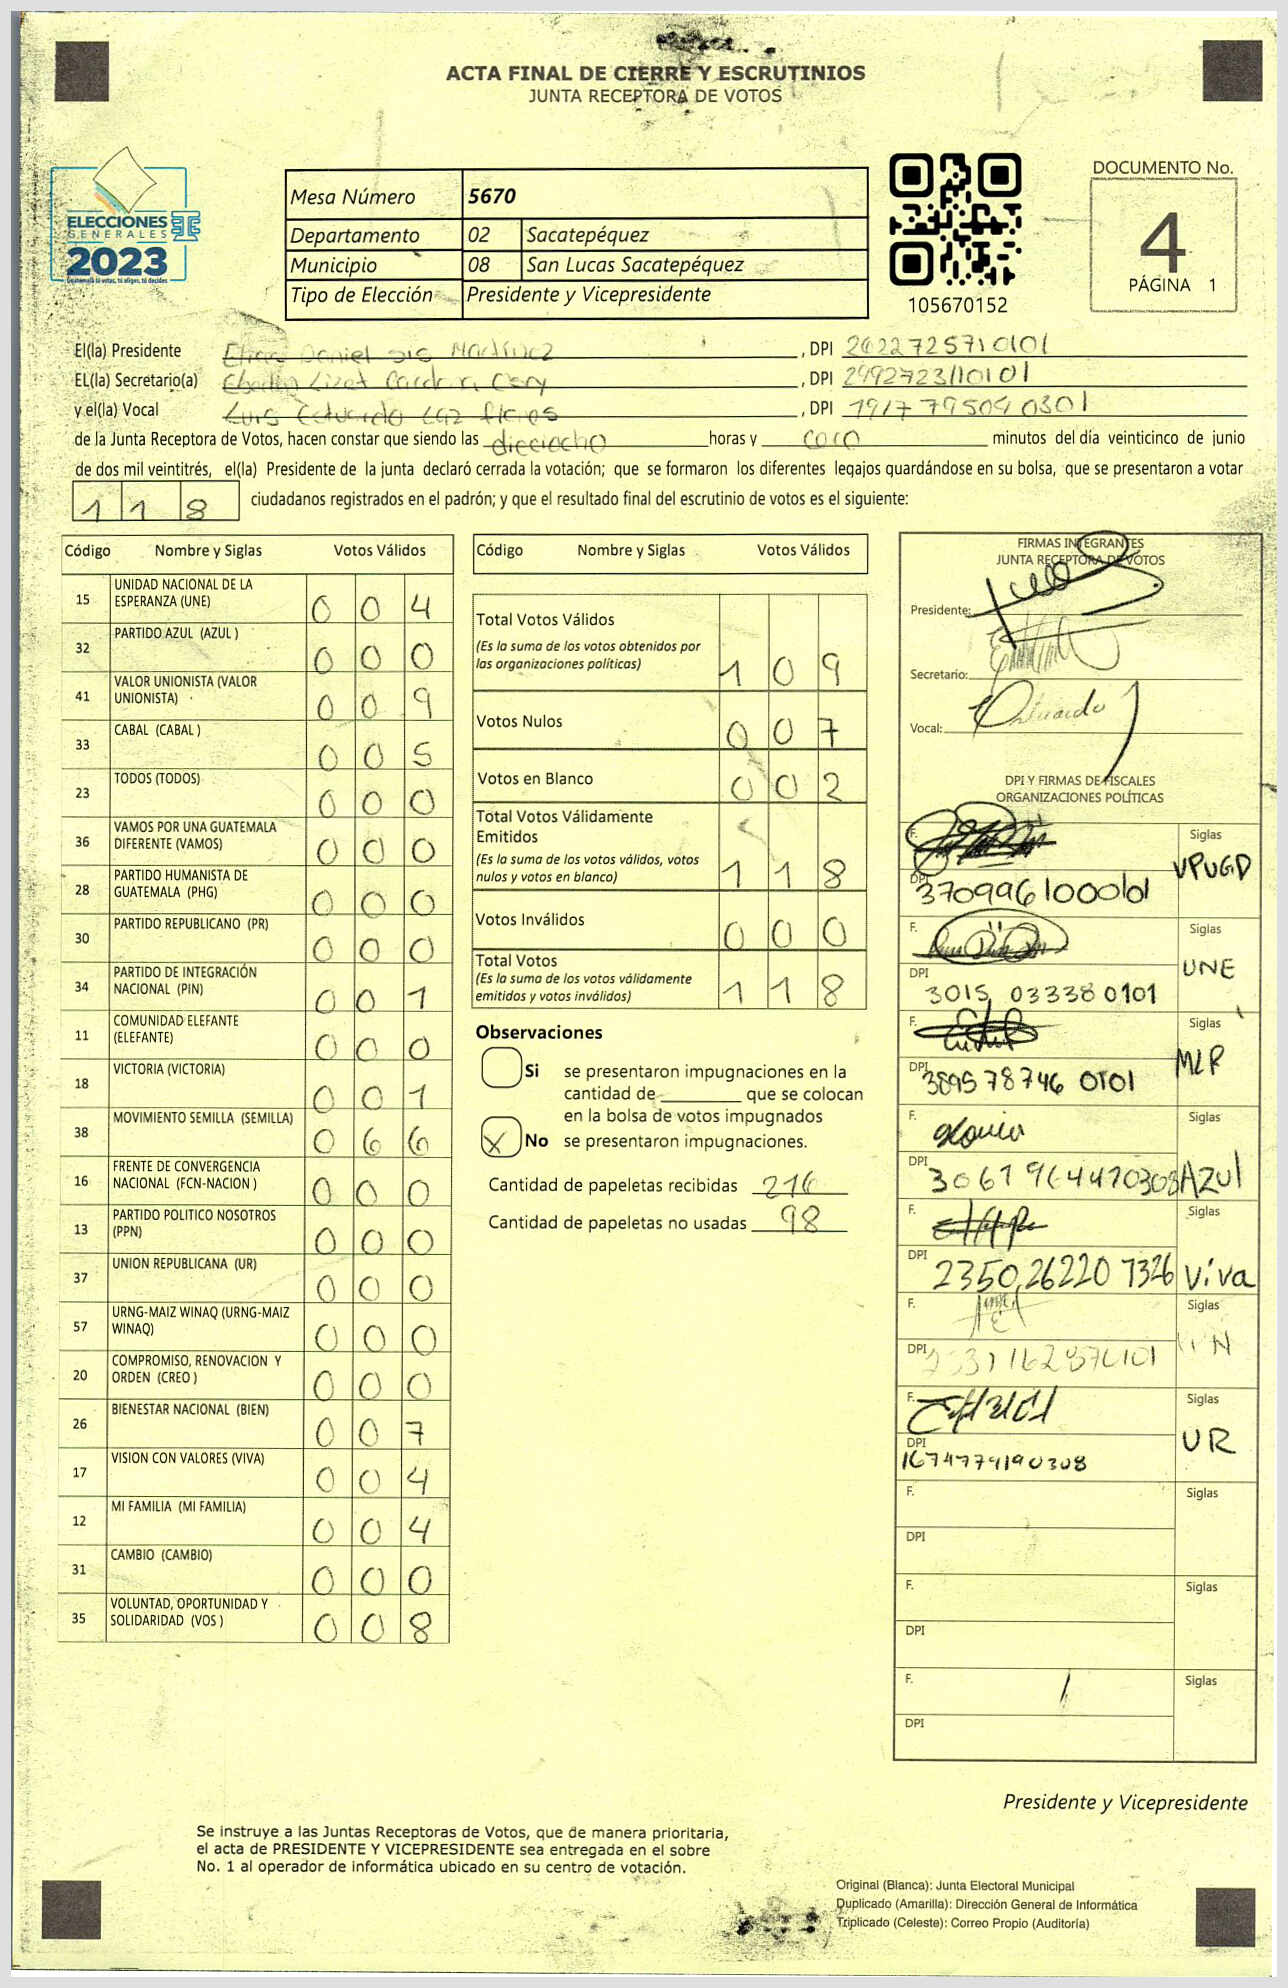 ACTA FINAL DE CIERRE Y ESCRUTINIOS
JUNTA RECEPTORA DE VOTOS
ELECCIONES
GENERALES
2023
Guatemala tú votas, tú eliges, tú decides
Mesa Número 5670
Departamento 02 Sacatepéquez
Municipio 08 San Lucas Sacatepéquez
Tipo de Elección Presidente y Vicepresidente
105670152
DOCUMENTO No.
4
PÁGINA 1
El(la) Presidente Daniel , DPI
EL(la) Secretario(a) Lizet , DPI
y el(la) Vocal Luis Eduardo , DPI
de la Junta Receptora de Votos, hacen constar que siendo las dieciocho horas y minutos del día veinticinco de junio
de dos mil veintitrés, el(la) Presidente de la junta declaró cerrada la votación; que se formaron los diferentes legajos guardándose en su bolsa, que se presentaron a votar
118 ciudadanos registrados en el padrón; y que el resultado final del escrutinio de votos es el siguiente:
Código Nombre y Siglas Votos Válidos
15 UNIDAD NACIONAL DE LA ESPERANZA (UNE) 0 0 4
32 PARTIDO AZUL (AZUL ) 0 0 0
41 VALOR UNIONISTA (VALOR UNIONISTA) 0 0 9
33 CABAL (CABAL ) 0 0 5
23 TODOS (TODOS) 0 0 0
36 VAMOS POR UNA GUATEMALA DIFERENTE (VAMOS) 0 0 0
28 PARTIDO HUMANISTA DE GUATEMALA (PHG) 0 0 0
30 PARTIDO REPUBLICANO (PR) 0 0 0
34 PARTIDO DE INTEGRACIÓN NACIONAL (PIN) 0 0 1
11 COMUNIDAD ELEFANTE (ELEFANTE) 0 0 0
18 VICTORIA (VICTORIA) 0 0 1
38 MOVIMIENTO SEMILLA (SEMILLA) 0 6 6
16 FRENTE DE CONVERGENCIA NACIONAL (FCN-NACION ) 0 0 0
13 PARTIDO POLITICO NOSOTROS (PPN) 0 0 0
37 UNION REPUBLICANA (UR) 0 0 0
57 URNG-MAIZ WINAQ (URNG-MAIZ WINAQ) 0 0 0
20 COMPROMISO, RENOVACION Y ORDEN (CREO ) 0 0 0
26 BIENESTAR NACIONAL (BIEN) 0 0 7
17 VISION CON VALORES (VIVA) 0 0 4
12 MI FAMILIA (MI FAMILIA) 0 0 4
31 CAMBIO (CAMBIO) 0 0 0
35 VOLUNTAD, OPORTUNIDAD Y SOLIDARIDAD (VOS ) 0 0 8
Código Nombre y Siglas Votos Válidos
Total Votos Válidos
(Es la suma de los votos obtenidos por
las organizaciones políticas) 1 0 9
Votos Nulos 0 0 7
Votos en Blanco 0 0 2
Total Votos Válidamente
Emitidos
(Es la suma de los votos válidos, votos
nulos y votos en blanco) 1 1 8
Votos Inválidos 0 0 0
Total Votos
(Es la suma de los votos válidamente
emitidos y votos inválidos) 1 1 8
Observaciones
Si se presentaron impugnaciones en la
cantidad de que se colocan
en la bolsa de votos impugnados
X No se presentaron impugnaciones.
Cantidad de papeletas recibidas 216
Cantidad de papeletas no usadas 98
FIRMAS INTEGRANTES
JUNTA RECEPTORA DE VOTOS
Presidente:
Secretario:
Vocal:
DPI Y FIRMAS DE FISCALES
ORGANIZACIONES POLÍTICAS
F. Siglas
VPUGD
DPI 3709961000101
F. Siglas
UNE
DPI 3015 03338 0101
F. Siglas
MLP
DPI 3895 78746 0101
F. Siglas
Azul
DPI 3061 96447 0308
F. Siglas
Viva
DPI 2350 26220 1326
F. Siglas
DPI
F. Siglas
UR
DPI 1674977490308
F. Siglas
DPI
F. Siglas
DPI
F. Siglas
DPI
Presidente y Vicepresidente
Se instruye a las Juntas Receptoras de Votos, que de manera prioritaria,
el acta de PRESIDENTE Y VICEPRESIDENTE sea entregada en el sobre
No. 1 al operador de informática ubicado en su centro de votación.
Original (Blanca): Junta Electoral Municipal
Duplicado (Amarilla): Dirección General de Informática
Triplicado (Celeste): Correo Propio (Auditoría)